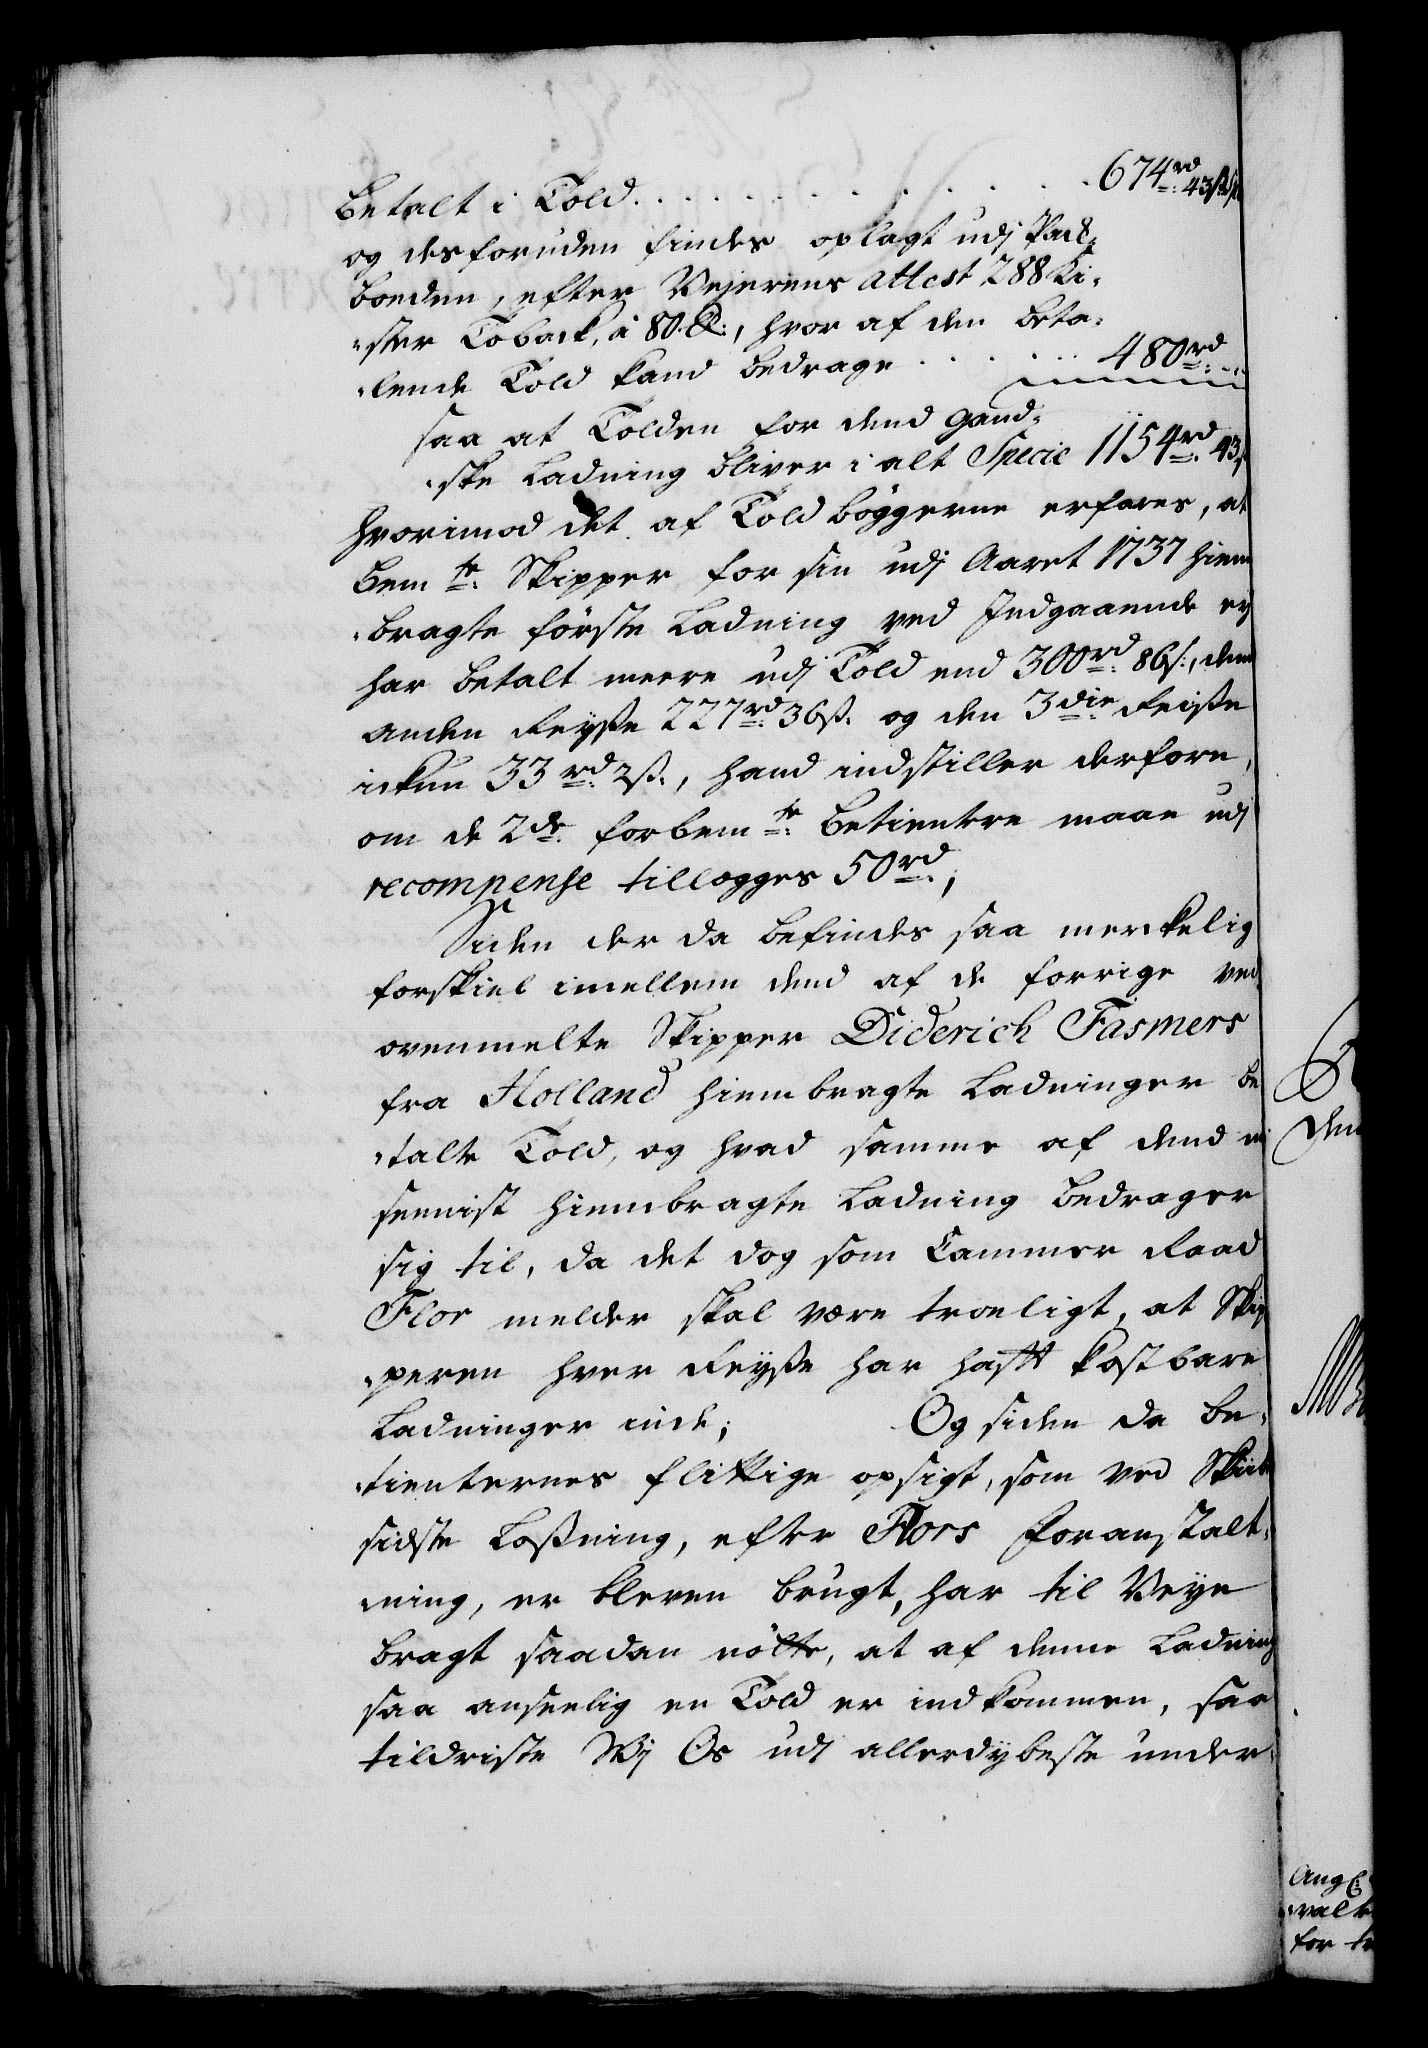 betalt i Told. . . . . . . . . . 674rd: 43ß
og desforuden findes oplagt udj Pack-
boeden, efter Vejerens attest 288 Ki-
-ster Toback, à 80 ℔:, hvor af den beta-
-lende Told kand bedrage . . . . . . 480rd: . .
saa at Tolden for dend gand-
-ske Ladning bliver i alt Specie 1154rd: 43ß
hvorimod det af Told bøggerne erfares, at
bemte: Skipper for sin udj Aaret 1737 hiem
-bragte første Ladning ved Indgaaende ey
har betalt meere udj Told end 300rd: 86ß:, den
anden Reyße 227rd: 36ß: og den 3die: Reiße
ickun 33rd: 2ß:, hand indstiller derfore,
om de 2de: forbemte: Betientere maae udj
recompense tillegges 50rd:;
Siden der da befindes saa merckelig
forskiel imellem dend af de forrige ved
ovenmelte Skipper Diderich Fasmers
fra Holland hiembragte Ladninger be
-talte Told, og hvad samme af dend nu
seenist hiembragte Ladning bedrager
sig til, da det dog som Cammer Raad
Flor melder skal være troeligt, at Skip
-peren hver Reyße har hafft kostbare
Ladninger inde; Og siden da be-
-tienternes flittige opsigt, som ved Skibets
sidste Loßning, efter Flors Foranstalt-
-ning, er bleven brugt, har til Veye
bragt saadan nötte, at af denne Ladning
saa anseelig en Told er indkommen, saa
tildriste Wj Os udj allerdybeste under-
den
Ang
-valt
for